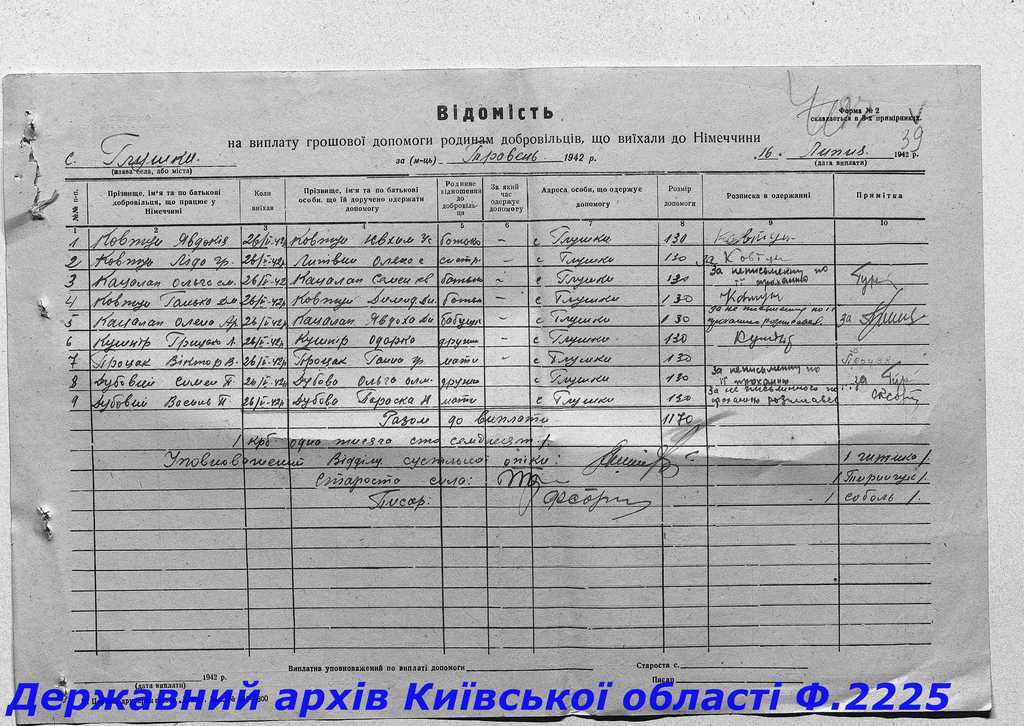 Відомість
Форма № 2
складається в 3-х примірниках.
39
на виплату грошової допомоги родинам добровільців, що виїхали до Німеччини
с. Глушки.
за (м-ць) Травень 1942 р.
16. Липня 1942 р.
(назва села, або міста)
(дата виплати)
№№ п-п. Прізвище, ім'я та по батькові добровільця, що працює у Німеччині Коли виїхав Прізвище, ім'я та по батькові особи, що їй доручено одержати допомогу Родинне відношення до добровільця За який час одержує допомогу Адреса особи, що одержує допомогу Розмір допомоги Розписка в одержанні Примітка
1 2 3 4 5 6 7 8 9 10
1 Ковтун Явдокія 26/V-42р Ковтун Юхим батько – с Глушки 130 Ковтун
2 Ковтун Ліда гр. 26/V-42р Литвин Олекс с сестр. – с Глушки 130 за Ковтун
3 Качалап Ольга см. 26/V-42р Качалап Семен батько – с Глушки 130 За неписьменну по її проханню
4 Ковтун Ганька 26/V-42р Ковтун батько – с Глушки 130 Ковтун
5 Качалап Олена 26/V-42р Качалап Явдоха бабуня – с Глушки 130 за
6 Кушнір Грицько 26/V-42р Кушнір Одарка дружин – с Глушки 130 Кушнір
7 Процак Віктор В. 26/V-42р Процак Ганна гр. мати – с Глушки 130 Процак
8 Дубовий Семен П. 26/V-42р Дубова Ольга дружин с Глушки 130 За неписьменну по її проханню за
9 Дубовий Василь П. 26/V-42р Дубова Параска мати с Глушки 130 За не письменного по проханню розписався
Разом до виплати 1170
/ крб одна тисяча сто сімдесят /.
Уповноважений Відділу суспільної опіки:
Староста села:
Писар: / Соболь /.
Виплатив уповноважений по виплаті допомоги
Староста с.
1942 р.
(дата виплати)
Писар
Державний архів Київської області Ф.2225